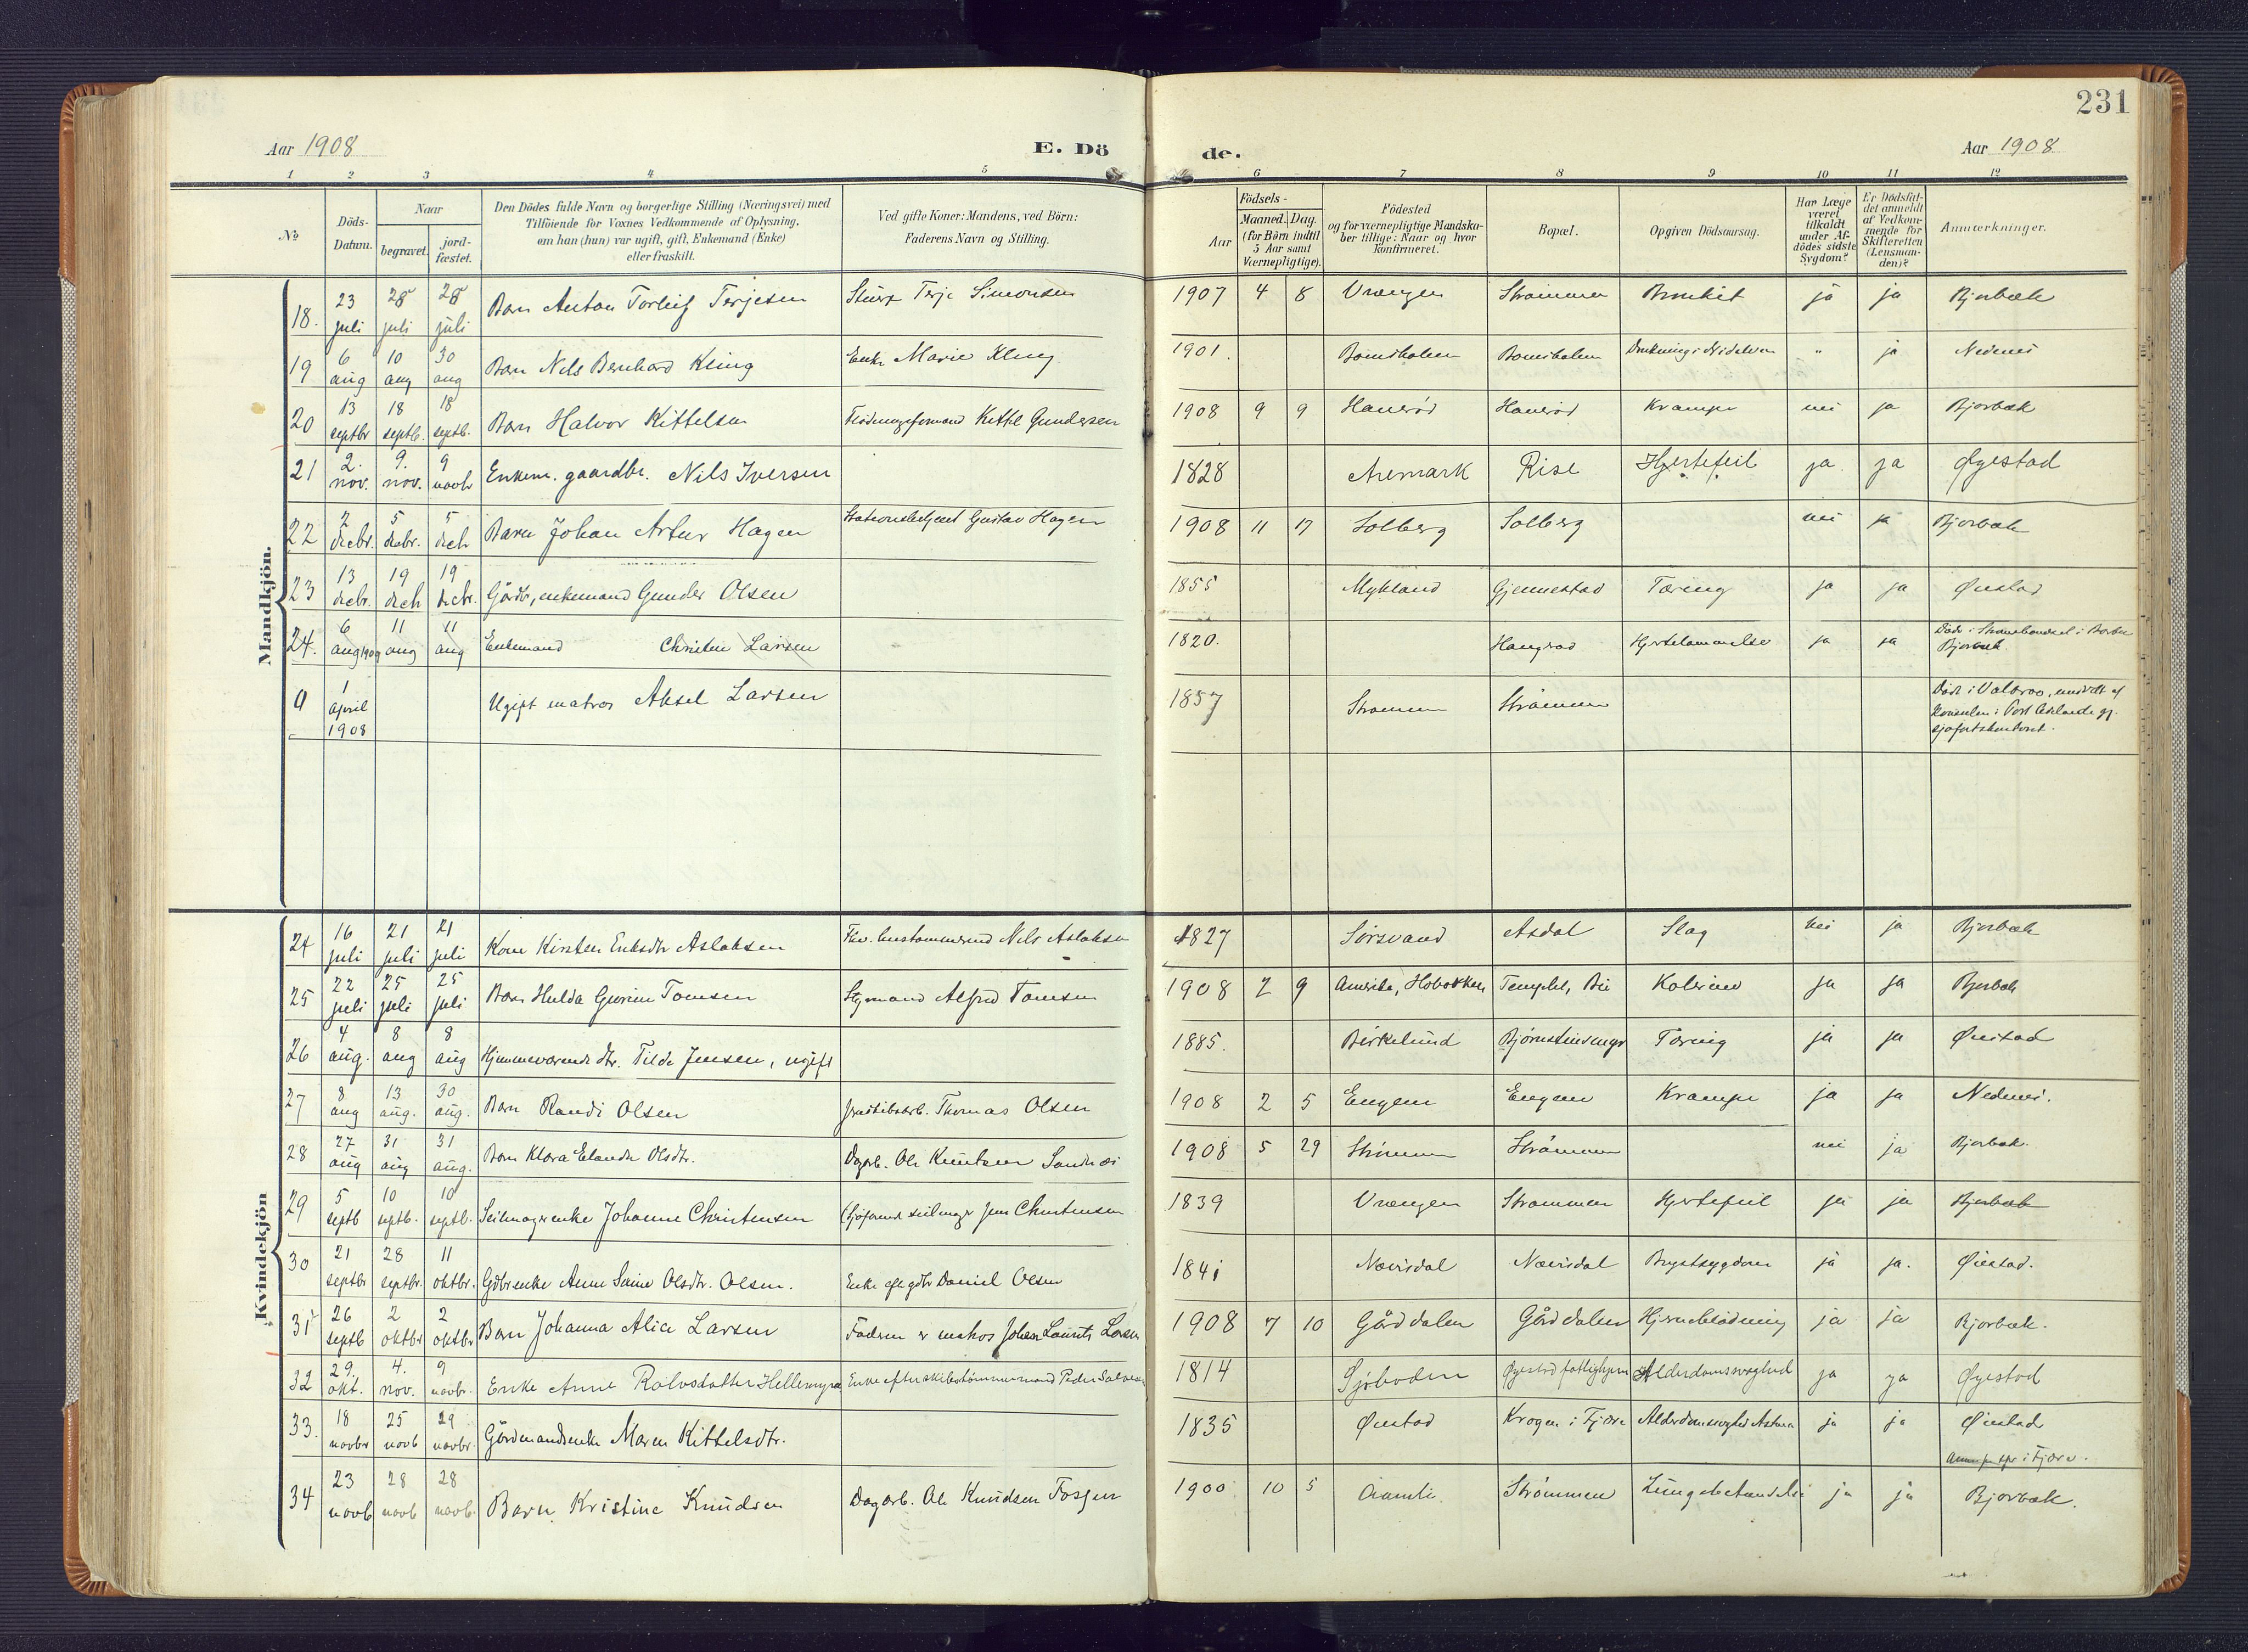 231
Aar 1908
E. Dö
de.
Aar 1908
1 2 3 4 5 6 7 8 9 10 11 12
№
Döds-Datum.
Naar
begravet.
jord-fæstet.
Den Dödes fulde Navn og borgerlige Stilling (Næringsvei) med
Tilföiende for Voxnes Vedkommende af Oplysning,
om han (hun) var ugift, gift, Enkemand (Enke)
eller fraskilt.
Ved gifte Koner: Mandens, ved Börn:
Faderens Navn og Stilling.
Födsels-
Aar
Maaned. Dag.
(for Börn indtil
5 Aar samt
Værnepligtige).
Födested
og for værnepligtige Mandska-
ber tillige: Naar og hvor
konfirmeret.
Bopæl.
Opgiven Dödsaarsag.
Har Læge
været
tilkaldt
under Af-
dödes sidste
Sygdom?
Er Dödsfal-
det anmeldt
af Vedkom-
mende for
Skifteretten
(Lensman-
den)?
Anmærkninger.
Mandkjön.
18. 23 juli 28 juli 28 juli Barn Anton Torleif Terjesen Terje Simonsen 1907 4 8 Vrængen Strømmen Bronkit ja ja Bjorbæk
19 6 aug 10 aug 30 aug Barn Nils Bernhard Kling Enke Marie Kling 1901. Bomsholmen Bomsholmen Drukning i Nidelven " ja Nedenes
20 13 septbr 18 septb. 18 septb. Barn Halvor Kittelsen Flødningsformand Kittil Gundersen 1908 9 9 Hauerød Hauerød Krampe nei ja Bjorbæk
21 2. nov. 9. nov. 9 novbr Enkem. gaardbr. Nils Iversen 1828 Aremark Rise Hjertefeil ja. ja Øyestad
22 2 decbr. 5 decbr. 5 decb Barn Johan Artur Hagen Stationsbetjent Gustav Hagen 1908 11 17 Solberg Solberg nei ja Bjorbæk
23 13 decbr. 19 decb 19 decbr. Gårdbr, enkemand Gunder Olsen 1855 Mykland Gjennestad Tæring ja ja Øiestad
24. 6 aug 1909 11 aug 11 aug Enkemand Christen Larsen 1820. Haugrød Hjertelammelse ja ja Døde i Bjorbæk
a 1 april 1908 Ugift matros Aksel Larsen 1857 Strømmen Strømmen Død i Valparaiso, meddelt af
Konsulen i Port Adelaide gj.
sjøfartskontoret.
Kvindekjön
24 16 juli 21 juli 21 juli Kone Kirsten Eriksdtr Aslaksen Fhv. Nils Aslaksen 1827 Sørsvand Asdal Slag nei ja Bjorbæk
25 22 juli 25 juli 25 juli Barn Hulda Gurine Tomsen Styrmand Alfred Tomsen 1908 2 9 Amerika, Hobokken Templet, Bie Kolerine ja ja Bjorbæk
26 4 aug. 8 aug 8 aug Hjemmeværende dtr. Tilde Jensen, ugift 1885. Birkelund Bjørnstinsmyr Tæring ja ja Øiestad
27 8 aug 13 aug. 30 aug. Barn Randi Olsen Thomas Olsen 1908 2 5 Engene Engene Krampe ja ja Nedenes.
28 27 aug 31 aug 31 aug. Barn Klara Elande Olsdtr. Dagarb. Ole Knutsen Sandnæs 1908 5 29 Strømmen Strømmen nei ja Bjorbæk.
29 5 septb 10 septb. 10 septb. Seilmagerenke Johanne Christensen Sjøfarende seilmager Jens Christensen 1839 Vrængen Strømmen Hjertefeil ja ja Bjorbæk
30 21 septbr 28 septbr. 11 oktbr. Gdbr enke Anne Serine Olsdtr. Olsen. Enke eft gdbr Daniel Olsen 1841 Nævisdal Nævisdal Brystsygdom ja ja. Øiestad.
31 26 septb 2 oktbr 2 oktbr Barn Johanna Alice Larsen Faderen er matros Johan Laurits Larsen 1908 7 10 Gård dalen Gård dalen Hjerneblødning ja ja Bjorbæk.
32 29. okt. 4. nov. 9 novbr. Enke Anne Rolvsdatter Hellemyra Enke efter skibstømmermand Peder Salvesen 1814 Sjøboden Øyestad fattighjem Alderdomssvaghed ja ja Øyestad
33. 18 novbr 25 novb 29 novbr. Gårdmandsenke Maren Kittelsdtr. 1835 Øiestad Krogen i Fjære Alderdomssvaghed Astma ja ja Øiestad
i Fjære.
34 23 novb 28 novb 28 novb. Barn Kristine Knudsen Dagarb. Ole Knudsen Fosjen 1900 10 5 Aamli Strømmen Lungebetændelse ja ja Bjorbæk.